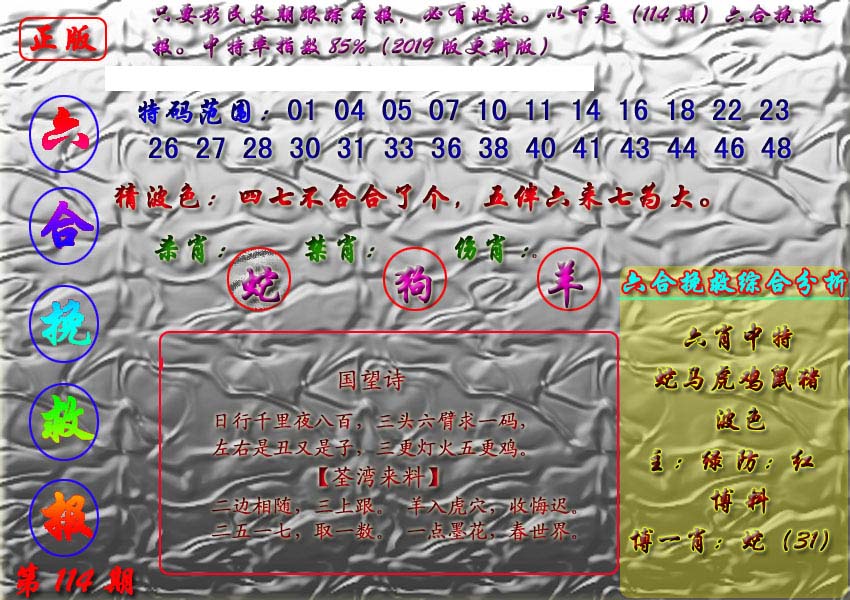 正版
只要彩民长期跟踪本报，必有收获。以下是（114期）六合挽救
报。中特率指数85%（2019版更新版）
六合挽救报
第114期
特码范围：01 04 05 07 10 11 14 16 18 22 23
26 27 28 30 31 33 36 38 40 41 43 44 46 48
猜波色：四七不合合了个，五伴六来七为大。
杀肖：蛇 禁肖：狗 伤肖：羊
国望诗
日行千里夜八百，三头六臂求一码，
左右是丑又是子，三更灯火五更鸡。
【荃湾来料】
二边相随，三上跟。 羊入虎穴，收悔迟。
二五一七，取一数。 一点墨花，春世界。
六合挽救综合分析
六肖中特
蛇马虎鸡鼠猪
波色
主：绿防：红
博料
博一肖：蛇（31）